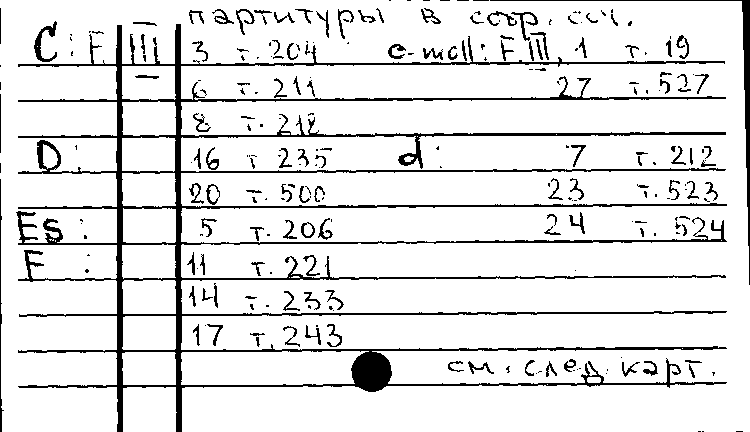 партитуры в собр. соч.
C: F. III 3 т. 204 c-moll: F. III, 1 т. 19
6 т. 211 27 т. 527
8 т. 218
D: 16 т 235 d: 7 т. 212
20 т. 500 23 т. 523
Es: 5 т. 206 24 т. 524
F: 11 т. 221
14 т. 233
17 т. 243
см. след. карт.